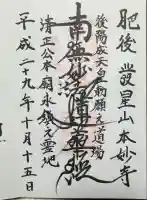 肥後 發星山本妙寺
後陽成天皇勅願之道場
南無妙法蓮華經
清正公本廟永鎮之霊地
平成二十九年十月十五日